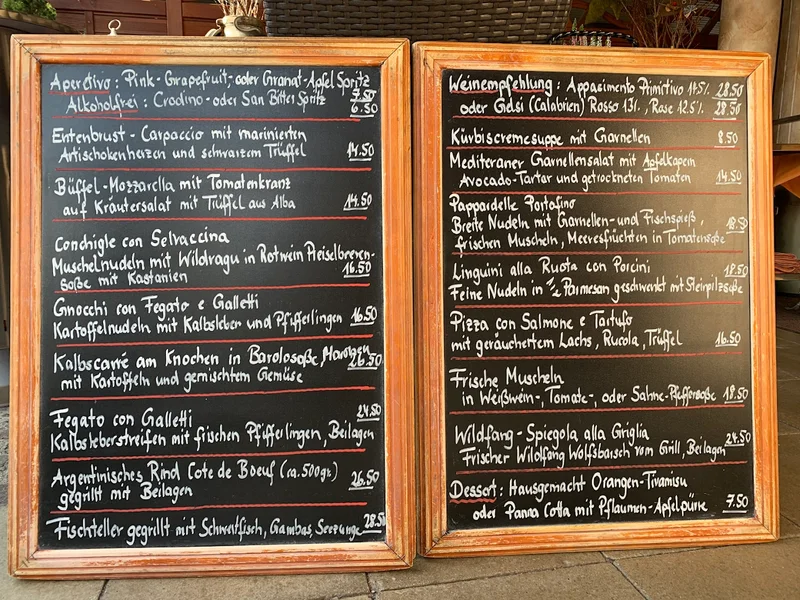 Aperetivo : Pink-Grapefruit-oder Granat-Apfel Spritz
7.50
Alkoholfrei : Crodino-oder San Bitter Spritz 6.50
Entenbrust - Carpaccio mit marinierten
Artischokenherzen und schwarzem Trüffel 14.50
Büffel-Mozzarella mit Tomatenkranz
auf Kräutersalat mit Trüffel aus Alba 14.50
Conchigle con Selvaccina
Muschelnudeln mit Wildragu in Rotwein Preiselbeeren-
soße mit Kastanien 16.50
Gnocchi con Fegato e Galletti
Kartoffelnudeln mit Kalbsleber und Pfifferlingen 16.50
Kalbscarré am Knochen in Barolosoße, Maronen
mit Kartoffeln und gemischtem Gemüse 26.50
Fegato con Galletti 24.50
Kalbsleberstreifen mit frischen Pfifferlingen, Beilagen
Argentinisches Rind Cote de Boeuf (ca. 500gr.)
gegrillt mit Beilagen 26.50
Fischteller gegrillt mit Schwertfisch, Gambas, Seezunge 28.50
Weinempfehlung : Appasimento Primitivo 14.5% 28.50
oder Gelsi (Calabrien) Rosso 13%, Rose 12.5% 28.50
Kürbiscremesuppe mit Garnellen 8.50
Mediteraner Garnellensalat mit Apfelkapern
Avocado-Tartar und getrockneten Tomaten 14.50
Pappardelle Portofino
Breite Nudeln mit Garnellen-und Fischspieß, 18.50
frischen Muscheln, Meeresfrüchten in Tomatensoße
Linguini alla Ruota con Porcini 18.50
Feine Nudeln in 1/2 Parmesan geschwenkt mit Steinpilzsoße
Pizza con Salmone e Tartufo
mit geräuchertem Lachs, Rucola, Trüffel 16.50
Frische Muscheln
in Weißwein-, Tomate-, oder Sahne-Pfeffersoße 18.50
Wildfang - Spiegola alla Griglia 24.50
Frischer Wildfang Wolfsbarsch vom Grill, Beilagen
Dessert : Hausgemacht Orangen-Tiramisu
oder Panna Cotta mit Pflaumen-Apfelpürre 7.50